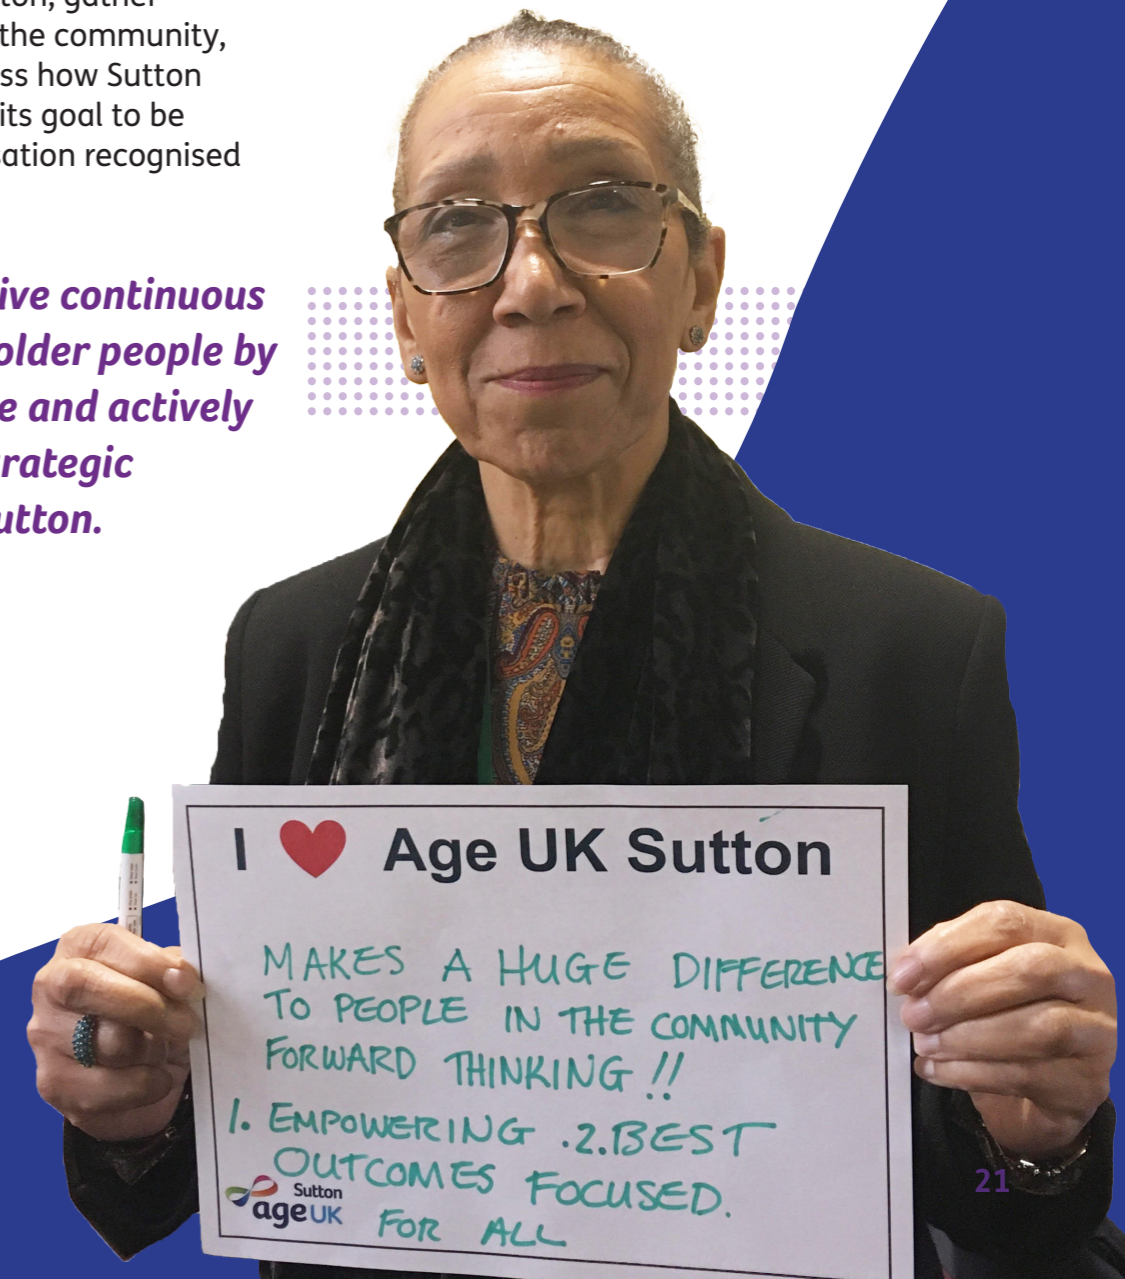 ton, gather
the community,
ss how Sutton
its goal to be
sation recognised
ive continuous
older people by
e and actively
rategic
utton.
I ❤ Age UK Sutton
MAKES A HUGE DIFFERENCE
TO PEOPLE IN THE COMMUNITY
FORWARD THINKING !!
1. EMPOWERING .2.BEST
OUTCOMES FOCUSED.
FOR ALL
Sutton
ageUK
21